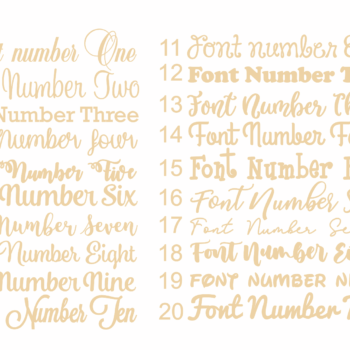 t number One
Number Two
Number Three
Number four
Number Five
Number Six
Number Seven
Number Eight
Number Nine
Number Ten
11 Font number E
12 Font Number T
13 Font Number Th
14 Font Number F
15 Font Number
16 Font Number
17 Font Number Se
18 Font Number E
19 FONT NUMBER N
20 Font Number T